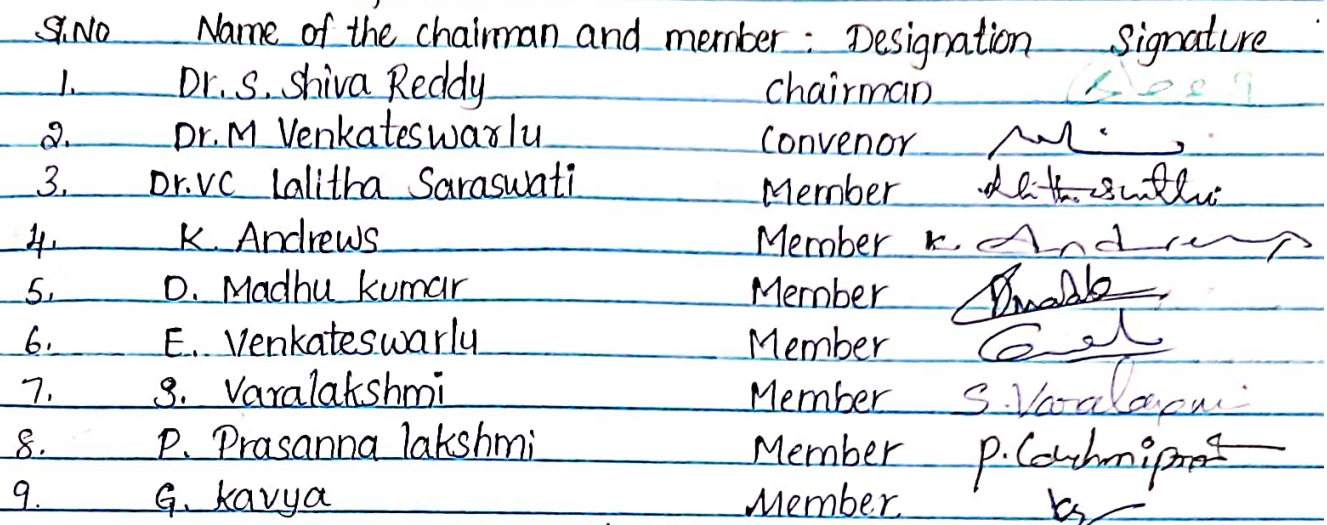 Sl.No Name of the chairman and member : Designation Signature
1. Dr. S. Shiva Reddy chairman
2. Dr. M Venkateswarlu Convenor
3. Dr. VC Lalitha Saraswati Member
4. K. Andrews Member K. Andrews
5. D. Madhu kumar Member
6. E. Venkateswarlu Member
7. S. Varalakshmi Member S.
8. P. Prasanna lakshmi Member P.
9. G. kavya Member